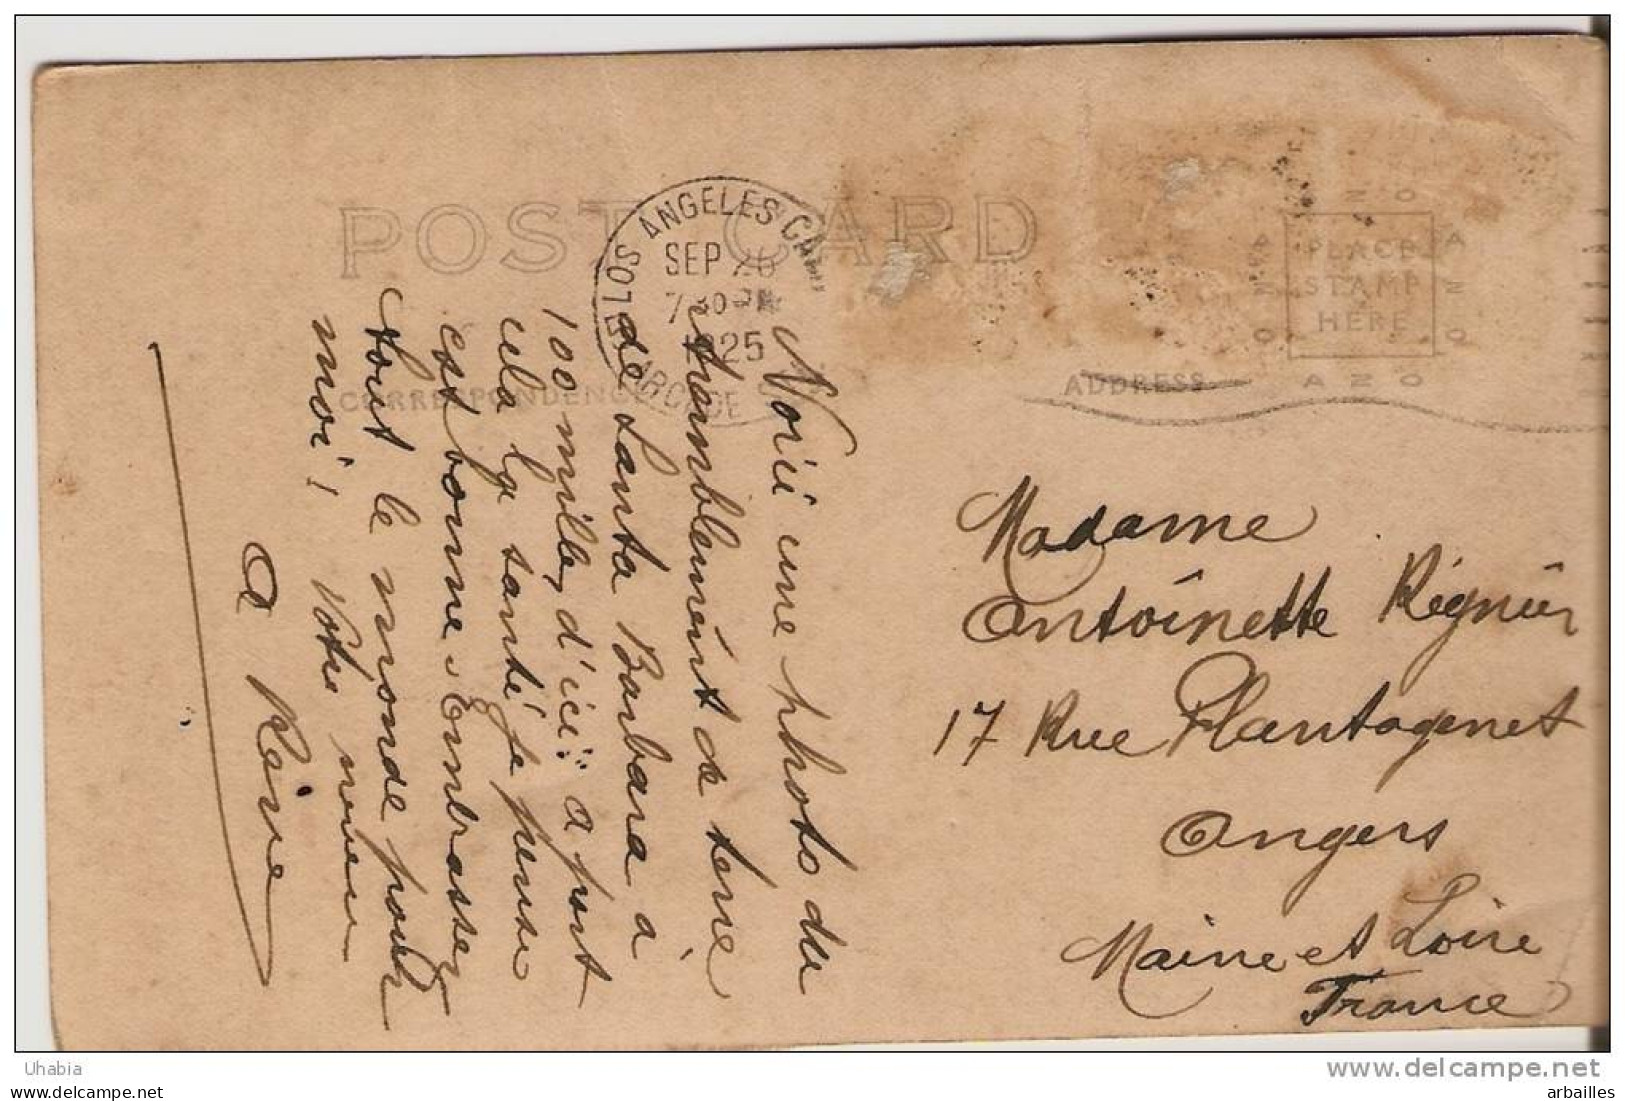 POST CARD
LOS ANGELES CALIF
SEP 26
7 30 PM
1925
ARCADE
CORRESPONDENCE
ADDRESS
AZO
AZO
AZO
AZO
PLACE
STAMP
HERE
Voici une photo du
tremblement de terre
de Santa Barbara à
100 mille d'ici. a part
cela la santé je pense
est bonne. Embrasser
tout le monde pour
moi! Votre neveu
Madame
Antoinette Régnier
17 Rue Plantagenet
Angers
Maine et Loire
France
Uhabia
www.delcampe.net
arbailles